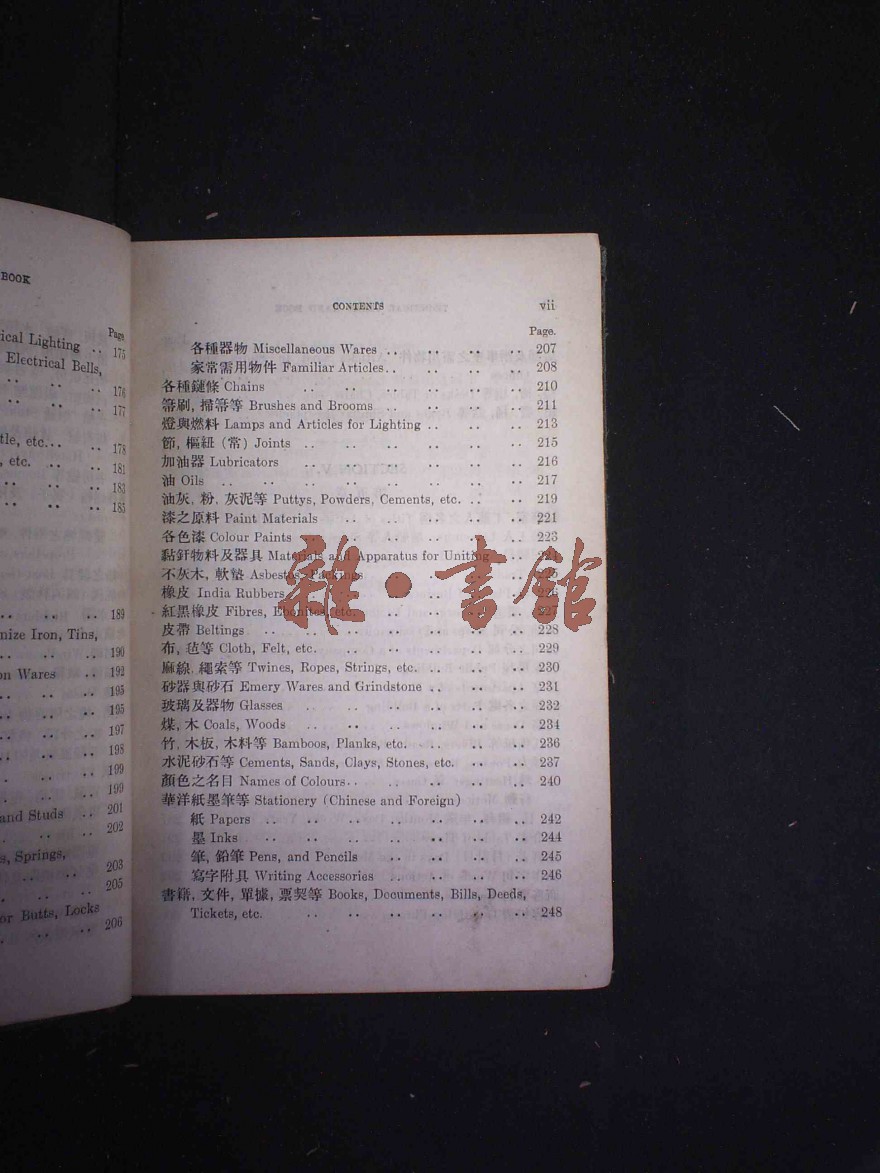 BOOK
Page
ical Lighting .. 175
Electrical Bells,
.. .. .. 176
.. .. .. 177
tle, etc... .. 178
, etc. .. .. 181
.. .. .. 183
.. .. .. 185
.. .. .. 189
nize Iron, Tins,
.. .. .. 190
on Wares .. 192
.. .. .. 195
.. .. .. 195
.. .. .. 197
.. .. .. 198
.. .. .. 199
.. .. .. 199
and Studs .. 201
.. .. .. 202
s, Springs,
.. .. .. 203
.. .. .. 205
or Butts, Locks
.. .. .. 206
CONTENTS vii
Page.
各種器物 Miscellaneous Wares .. .. .. .. 207
家常需用物件 Familiar Articles.. .. .. .. 208
各種鏈條 Chains .. .. .. .. .. .. 210
箒刷, 掃箒等 Brushes and Brooms .. .. .. .. 211
燈與燃料 Lamps and Articles for Lighting .. .. .. 213
節, 樞紐 (常) Joints .. .. .. .. .. .. 215
加油器 Lubricators .. .. .. .. .. .. 216
油 Oils .. .. .. .. .. .. .. .. 217
油灰, 粉, 灰泥等 Puttys, Powders, Cements, etc. .. .. 219
漆之原料 Paint Materials .. .. .. .. .. 221
各色漆 Colour Paints .. .. .. .. .. 223
黏釬物料及器具 Materials and Apparatus for Uniting .. 224
不灰木, 軟墊 Asbestos, Packings .. .. .. ..
橡皮 India Rubbers .. .. .. .. .. 226
紅黑橡皮 Fibres, Ebonites, etc. .. .. .. .. 227
皮帶 Beltings .. .. .. .. .. .. .. 228
布, 毡等 Cloth, Felt, etc. .. .. .. .. .. 229
麻線, 繩索等 Twines, Ropes, Strings, etc. .. .. .. 230
砂器與砂石 Emery Wares and Grindstone .. .. .. 231
玻璃及器物 Glasses .. .. .. .. .. 232
煤, 木 Coals, Woods .. .. .. .. .. .. 234
竹, 木板, 木料等 Bamboos, Planks, etc. .. .. .. 236
水泥砂石等 Cements, Sands, Clays, Stones, etc. .. .. 237
顏色之名目 Names of Colours.. .. .. .. .. 240
華洋紙墨筆等 Stationery (Chinese and Foreign)
紙 Papers .. .. .. .. .. .. .. 242
墨 Inks .. .. .. .. .. .. .. 244
筆, 鉛筆 Pens, and Pencils .. .. .. .. 245
寫字附具 Writing Accessories .. .. .. .. 246
書籍, 文件, 單據, 票契等 Books, Documents, Bills, Deeds,
Tickets, etc. .. .. .. .. .. .. 248
雜·書館